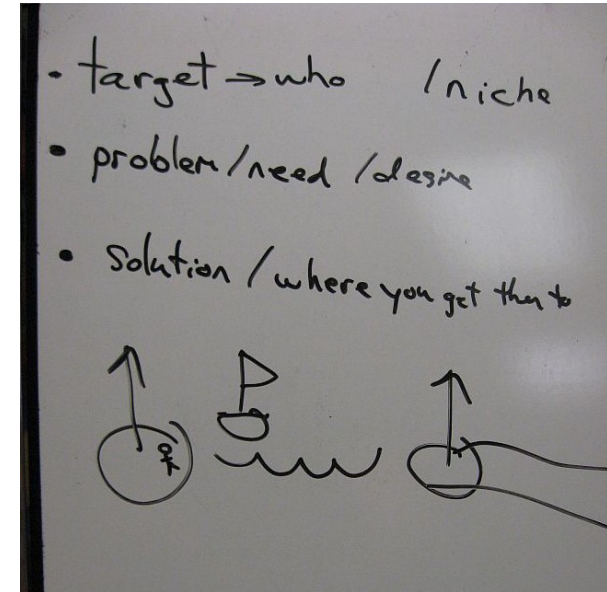 • target → who /niche
• problem/need/desire
• solution/where you get them to